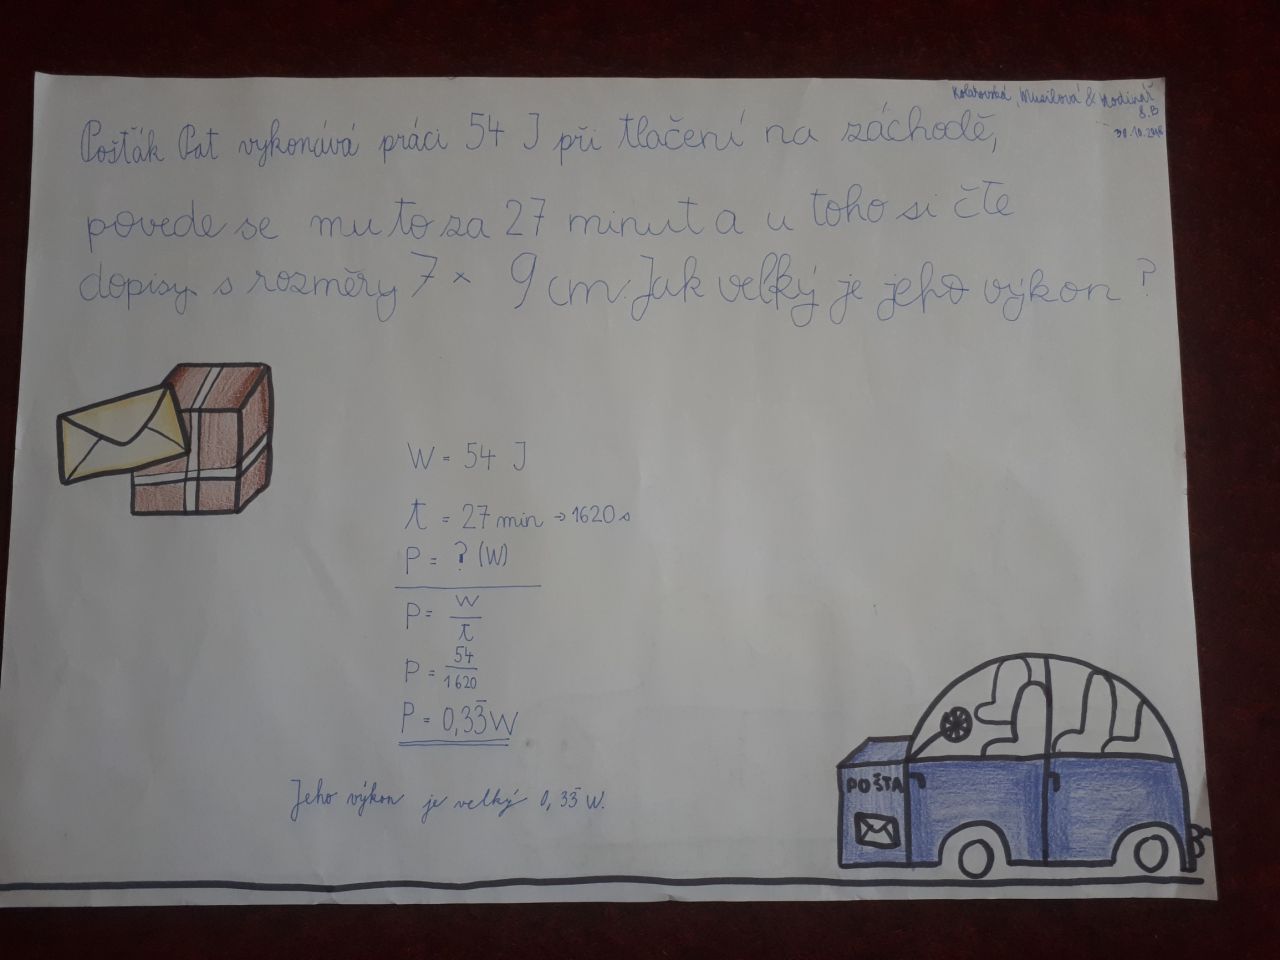 Kolářovská, Musilová & Hodinář
8.B
30.10.2018
Pošťák Pat vykonává práci 54 J při tlačení na záchodě,
povede se mu to za 27 minut a u toho si čte
dopisy s rozměry 7 × 9 cm. Jak velký je jeho výkon?
W = 54 J
t = 27 min → 1620 s
P = ? (W)
P = W/t
P = 54/1620
P = 0,33̅ W
Jeho výkon je velký 0,33̅ W.
POŠTA